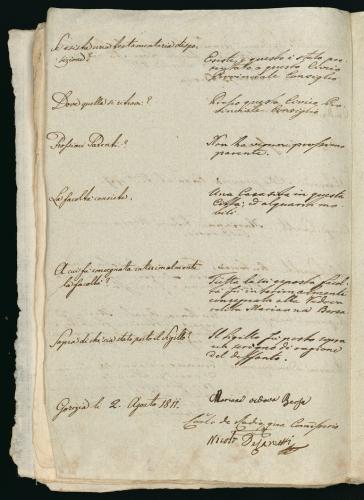 Si esiste una testamentaria dispo-
sizione?
Esiste, e questa è stata pre-
sentata a questo Civico
Provinciale Consiglio
Dove quella si ritrova?
Presso questo Civico Pro-
vinciale Consiglio
Prossimi Parenti?
Non ha verun prossimo
parente.
La facoltà consiste.
Una Casa sita in questa
Città, ed alquanti mo-
bili
A cui fu consegnata interimalmente
la facoltà?
Tutta la sù esposta facol-
tà fù interimalmente
consegnata alla Vedova
relitta Marianna Bersa
Sopra di che sia stato posto il Sigillo?
Il Sigillo fù posto sopra
un di ragione
del deffonto.
Gorizia li 2. Agosto 1811.
vedova Bersa
Carlo de qua Comissario
Nicolò